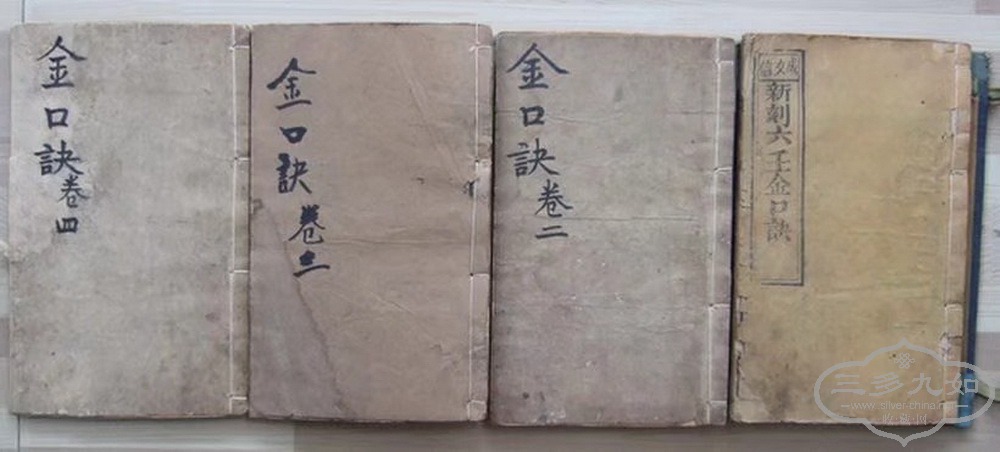 成文信
新刻六壬金口訣
金口訣卷二
金口訣卷三
金口訣卷四
三多九如
收藏网